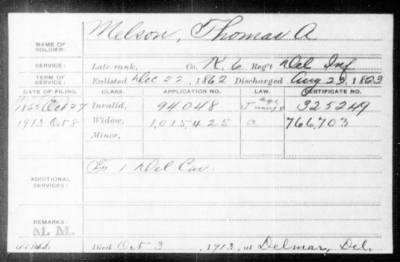 NAME OF SOLDIER: Melson, Thomas A
SERVICE: Late rank, Co. K, 6 Reg't Del Inf
TERM OF SERVICE: Enlisted Dec 22, 1862 Discharged Aug 23, 1863
DATE OF FILING. CLASS. APPLICATION NO. LAW. CERTIFICATE NO.
Oct 27 Invalid, 94048 325249
1913 Oct 8 Widow, 1,015,425 766,703
Minor,
ADDITIONAL SERVICES: 1 Del Cav
REMARKS: M. M.
Died Oct 3, 1913, at Delmar, Del.